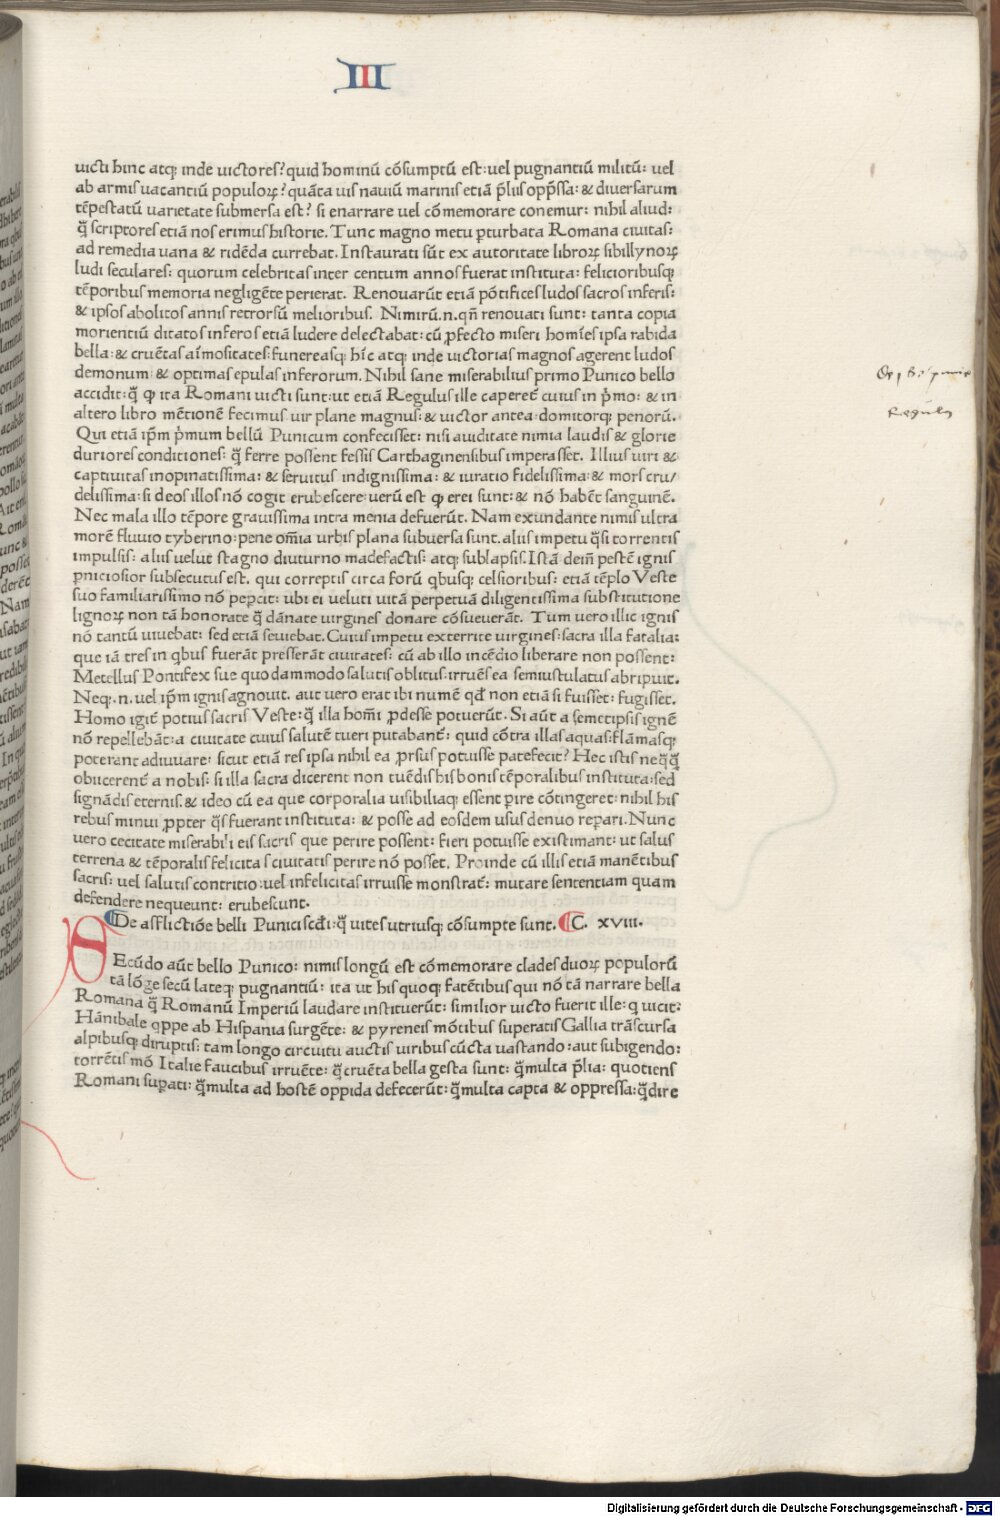 III
uicti hinc atq; inde uictores? quid hominū cōsumptū est: uel pugnantiū militū: uel
ab armis uacantiū populoꝝ? quāta uis nauiū marinis etiā p̄liis opp̄ssa: & diuersarum
tēpestatū uarietate submersa est? si enarrare uel cōmemorare conemur: nihil aliud:
q̄̄ scriptores etiā nos erimus historie. Tunc magno metu ꝑturbata Romana ciuitas:
ad remedia uana & ridēda currebat. Instaurati sūt ex autoritate libroꝝ sibillynoꝝ
ludi seculares: quorum celebritas inter centum annos fuerat instituta: felicioribusq;
tēporibus memoria negligēte perierat. Renouarūt etiā pōtifices ludos sacros inferis:
& ipsos abolitos annis retrorsū melioribus. Nimirū.n.qn̄ renouati sunt: tanta copia
morientiū ditatos inferos etiā ludere delectabat: cū ꝓfecto miseri homīes ipsa rabida
bella: & cruētas aīmositates: funereasq; hīc atq; inde uictorias magnos agerent ludos
demonum: & optimas epulas inferorum. Nihil sane miserabilius primo Punico bello
accidit: q̄̄ ꝙ ita Romani uicti sunt: ut etiā Regulus ille caperet̄ cuius in p̄mo: & in
altero libro mētionē fecimus uir plane magnus: & uictor antea: domitorq; penorū.
Qui etiā ip̄m p̄mum bellū Punicum confecisset: nisi auiditate nimia laudis & glorie
duriores conditiones: q̄̄ ferre possent fessis Carthaginensibus imperasset. Illius uiri &
captiuitas inopinatissima: & seruitus indignissima: & iuratio fidelissima: & mors cru/
delissima: si deos illos nō cogit erubescere: uerū est ꝙ erei sunt: & nō habēt sanguinē.
Nec mala illo tēpore grauissima intra menia defuerūt. Nam exundante nimis ultra
morē fluuio tyberino: pene om̄ia urbis plana subuersa sunt. aliis impetu q̄si torrentis
impulsis: aliis uelut stagno diuturno madefactis: atq; sublapsis. Istā dein̄ pestē ignis
ꝑniciosior subsecutus est. qui correptis circa forū q̇busq; celsioribus: etiā tēplo Veste
suo familiarissimo nō peꝑcit: ubi ei ueluti uitā perpetuā diligentissima substitutione
lignoꝝ non tā honorate q̄̄ dānate uirgines donare cōsueuerāt. Tum uero illic ignis
nō tantū uiuebat: sed etiā seuiebat. Cuius impetu exterrite uirgines: sacra illa fatalia:
que iā tres in q̇bus fuerāt presserāt ciuitates: cū ab illo incēdio liberare non possent:
Metellus Pontifex sue quodammodo salutis oblitus: irruēs ea semiustulatus abripuit.
Neq;.n. uel ip̄m ignis agnouit. aut uero erat ibi numē qd̄ non etiā si fuisset: fugisset.
Homo igit̄ potius sacris Veste: q̄̄ illa homī ꝓdesse potuerūt. Si aūt a semetipsis ignē
nō repellebāt: a ciuitate cuius salutē tueri putabant̄: quid cōtra illas aquas: flāmasq;
poterant adiuuare: sicut etiā res ipsa nihil ea ꝓrsus potuisse patefecit? Hec istis neq̄q̄̄
obiicerent̄ a nobis: si illa sacra dicerent non tuēdis his bonis tēporalibus instituta: sed
signādis eternis. & ideo cū ea que corporalia uisibiliaq; essent ꝑire cōtingeret: nihil his
rebus minui ꝓpter q̄s fuerant instituta: & posse ad eosdem usus denuo reꝑari. Nunc
uero cecitate miserabili eis sacris que perire possent: fieri potuisse existimant: ut salus
terrena & tēporalis felicitas ciuitatis perire nō posset. Proinde cū illis etiā manētibus
sacris: uel salutis contritio: uel infelicitas irruisse monstrat̄: mutare sententiam quam
defendere nequeunt: erubescunt.
De afflictiōe belli Punici scd̄i: q̄̄ uires utriusq; cōsumpte sunt. C. xviii.
SEcūdo aūt bello Punico: nimis longū est cōmemorare clades duoꝝ populorū
tā lōge secū lateq; pugnantiū: ita ut his quoq; fatētibus qui nō tā narrare bella
Romana q̄̄ Romanū Imperiū laudare instituerūt: similior uicto fuerit ille: q uicit:
Hānibale qppe ab Hispania surgēte: & pyreneis mōtibus superatis Gallia trāscursa
alpibusq; diruptis: tam longo circuitu auctis uiribus cūcta uastando: aut subigendo:
torrētis mō Italie faucibus irruēte: q̄̄ cruēta bella gesta sunt: q̄̄ multa p̄lia: quotiens
Romani suꝑati: q̄̄ multa ad hostē oppida defecerūt: q̄̄ multa capta & oppressa: q̄̄ dire
Regulus
Digitalisierung gefördert durch die Deutsche Forschungsgemeinschaft - DFG